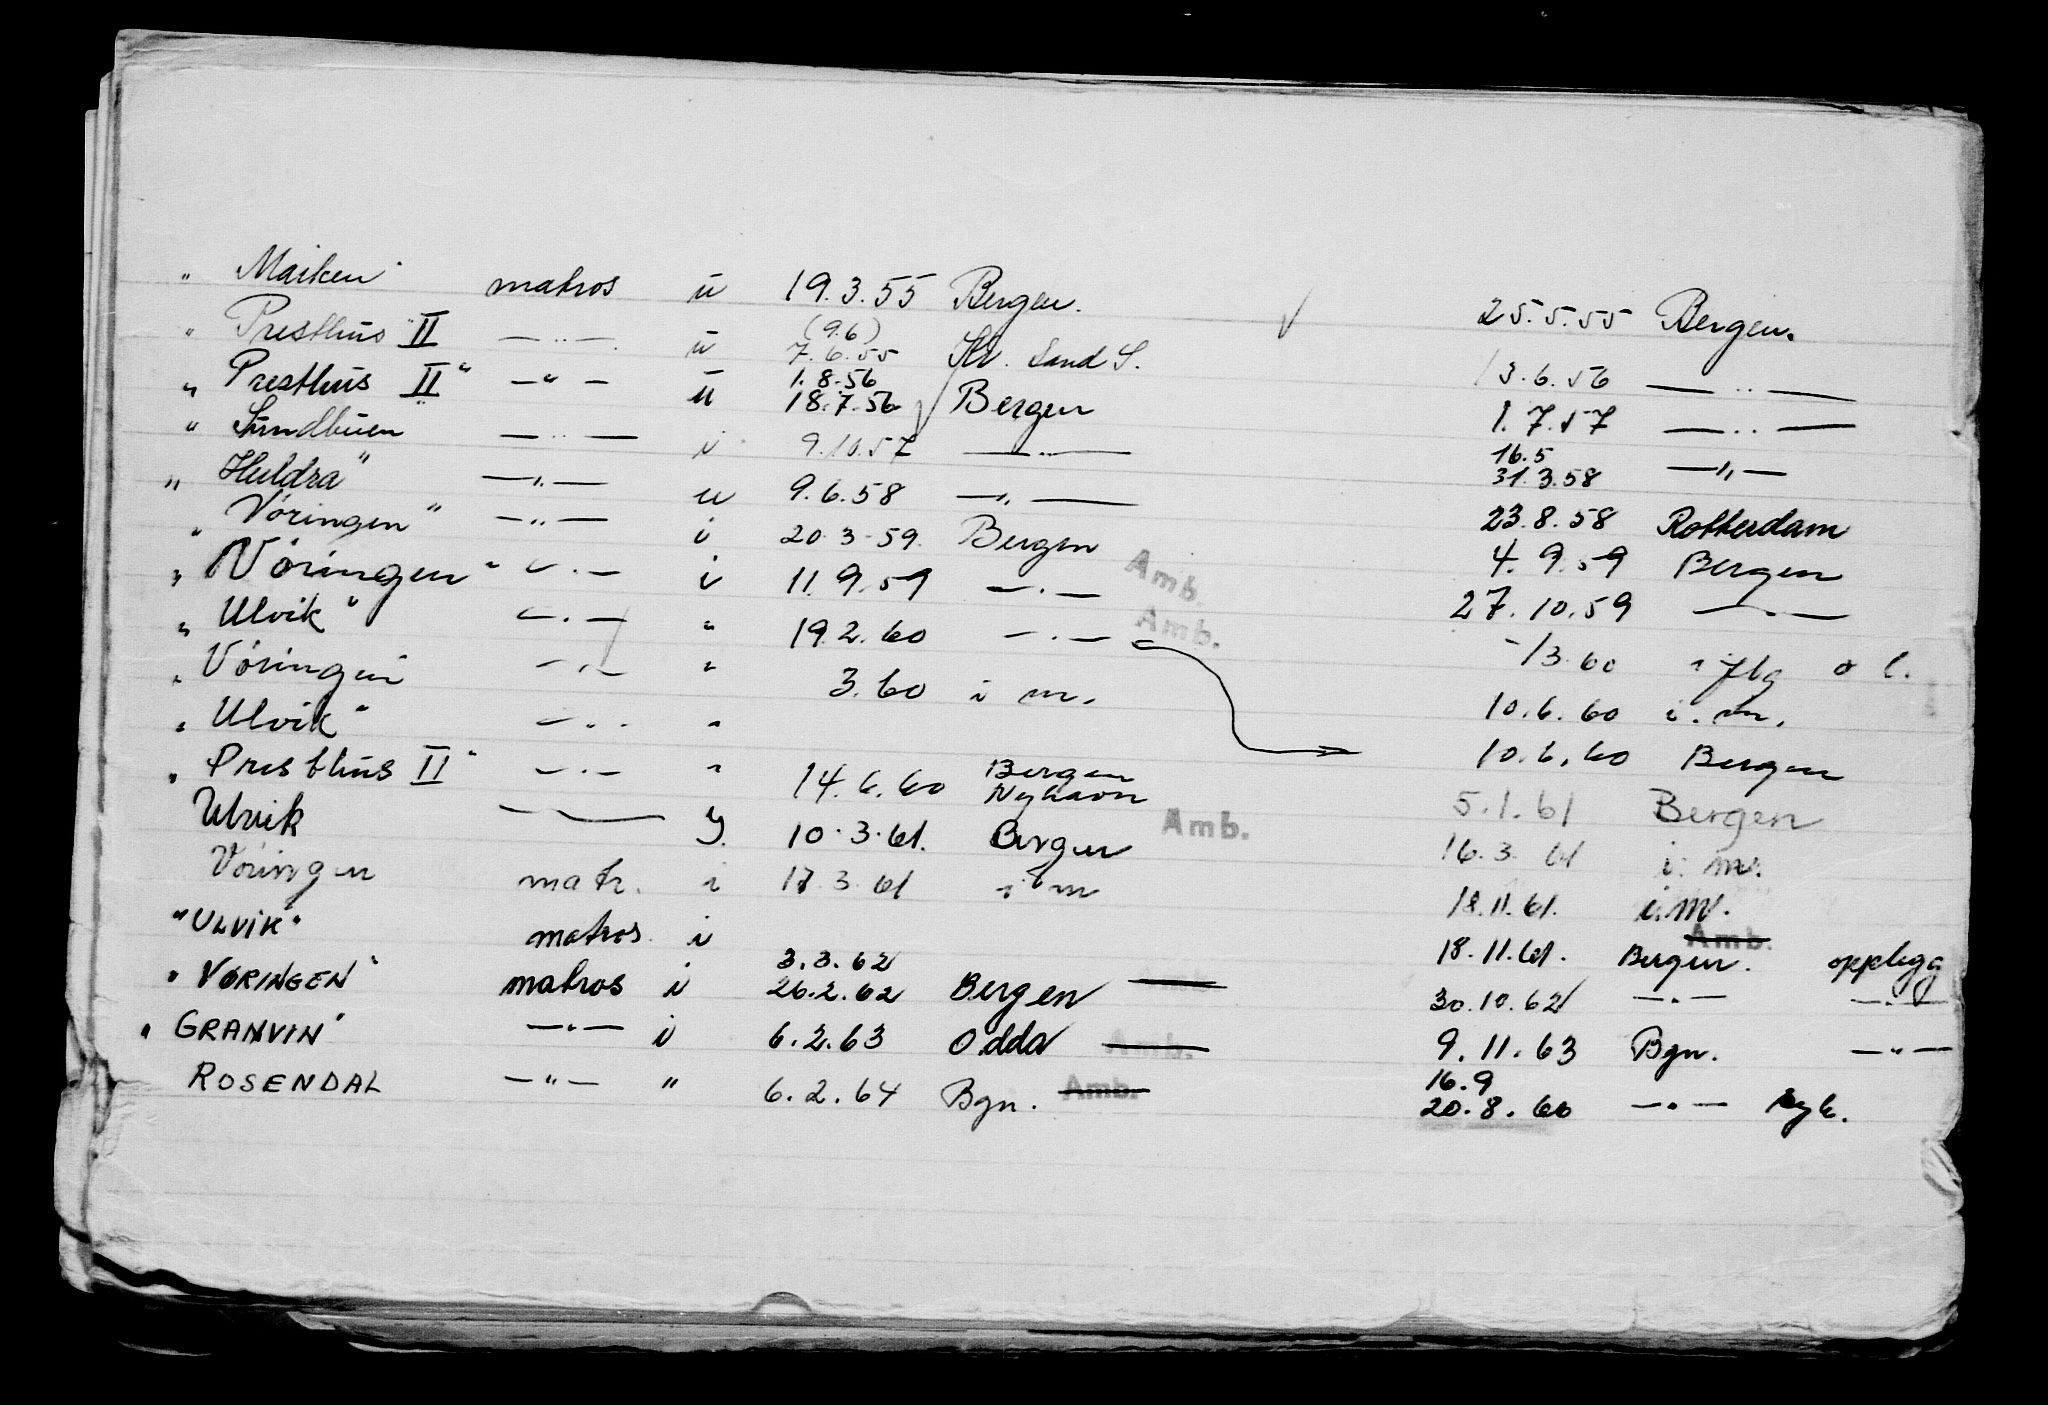 " Maiken" matros u 19.3.55 Bergen. 25.5.55 Bergen.
" Presthus "II — " — u (9.6) 7.6.55 Kr. Sand S. 13.6.56 — " —
" Presthus II" — " — u 1.8.56 18.7.56 Bergen 1.7.57 — " —
" Sundbuen — " — i 9.10.57 — " — 16.5 31.3.58 — " —
" Huldra" — " — u 9.6.58 — " — 23.8.58 Rotterdam
" Vøringen" — " — i 20.3.59. Bergen Amb. 4.9.59 Bergen
" Vöringen" — " — i 11.9.59 — " — Amb. 27.10.59 — " —
" Ulvik" — " — " 19.2.60 — " — -/3.60
" Vöringen — " — " 3.60 i m. 10.6.60 i. m.
" Ulvik" — " — " 10.6.60 Bergen
" Presthus II" — " — " 14.6.60 Bergen Nyhavn 5.1.61 Bergen
Ulvik — 10.3.61. Bergen Amb. 16.3.61 i. m.
Vöringen matr. i 17.3.61 i m 18.11.61. i.m.
"ULVIK" matros i Amb. 18.11.61. Bergen. opplegg
" VØRINGEN" matros i 3.3.62 26.2.62 Bergen 30.10.62 — " — — " —
" GRANVIN" — " — i 6.2.63 Odda Amb. 9.11.63 Bgn. — " —
ROSENDAL — " — " 6.2.64 Bgn. Amb. 16.9 20.8.66 — " —